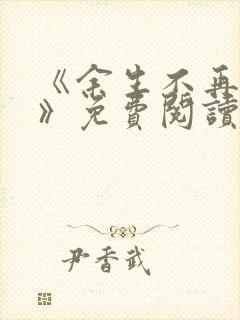 《余生不再
》免費閱讀
尹香武